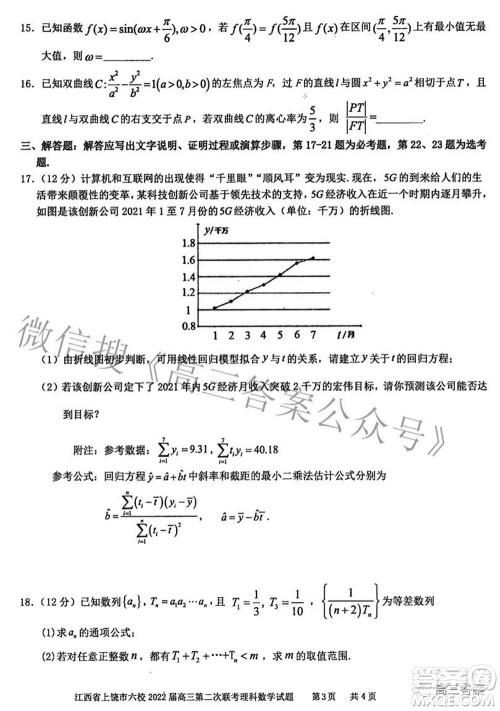 15. 已知函数 f(x)=sin(ωx+π/6), ω>0, 若 f(π/4)=f(5π/12) 且 f(x) 在区间 (π/4, 5π/12) 内有最小值无
最大值, 则 ω=______.
16. 已知双曲线 C: x²/a² − y²/b² = 1(a>0,b>0) 的左焦点为 F, 过 F 的直线 l 与圆 x²+y²=a² 相切于点 T, 且
直线 l 与双曲线 C 的右支交于点 P, 若双曲线 C 的离心率为 5/3, 则 |PT|/|FT| = ______.
三、解答题: 解答应写出文字说明、证明过程或演算步骤, 第 17-21 题为必考题, 第 22、23 题为选考
题.
17. (12 分) 计算机和互联网的出现使得“千里眼”“顺风耳”变为现实. 现在, 5G 的到来给人们的生
活带来颠覆性的变革, 某科技创新公司基于领先技术的支持, 5G 经济收入在近一个时期内逐月攀升,
如图是该创新公司 2021 年 1 至 7 月份的 5G 经济收入 (单位: 千万) 的折线图.
y/千万
1.8
1.6
1.4
1.2
1
0.8
1 2 3 4 5 6 7 t/月
(1) 由折线图初步判断, 可用线性回归模型拟合 y 与 t 的关系, 请建立 y 关于 t 的回归方程;
(2) 若该创新公司定下了 2021 年内 5G 经济月收入突破 2 千万的宏伟目标, 请你预测该公司能否达
到目标?
附注: 参考数据: ∑(i=1→7) yᵢ = 9.31, ∑(i=1→7) tᵢyᵢ = 40.18
参考公式: 回归方程 ŷ = â + b̂t 中斜率和截距的最小二乘法估计公式分别为
b̂ = ∑(i=1→n) (tᵢ − t̄)(yᵢ − ȳ) / ∑(i=1→n) (tᵢ − t̄)², â = ȳ − b̂t̄.
18. (12 分) 已知数列 {aₙ}, Tₙ = a₁a₂…aₙ, 且 T₁ = 1/3, T₃ = 1/10, {1/((n+2)Tₙ)} 为等差数列
(1) 求 aₙ 的通项公式;
江西省上饶市六校 2022 届高三第二次联考理科数学试题 第 3 页 共 4 页
微信搜《高三答案公众号》
高三答案